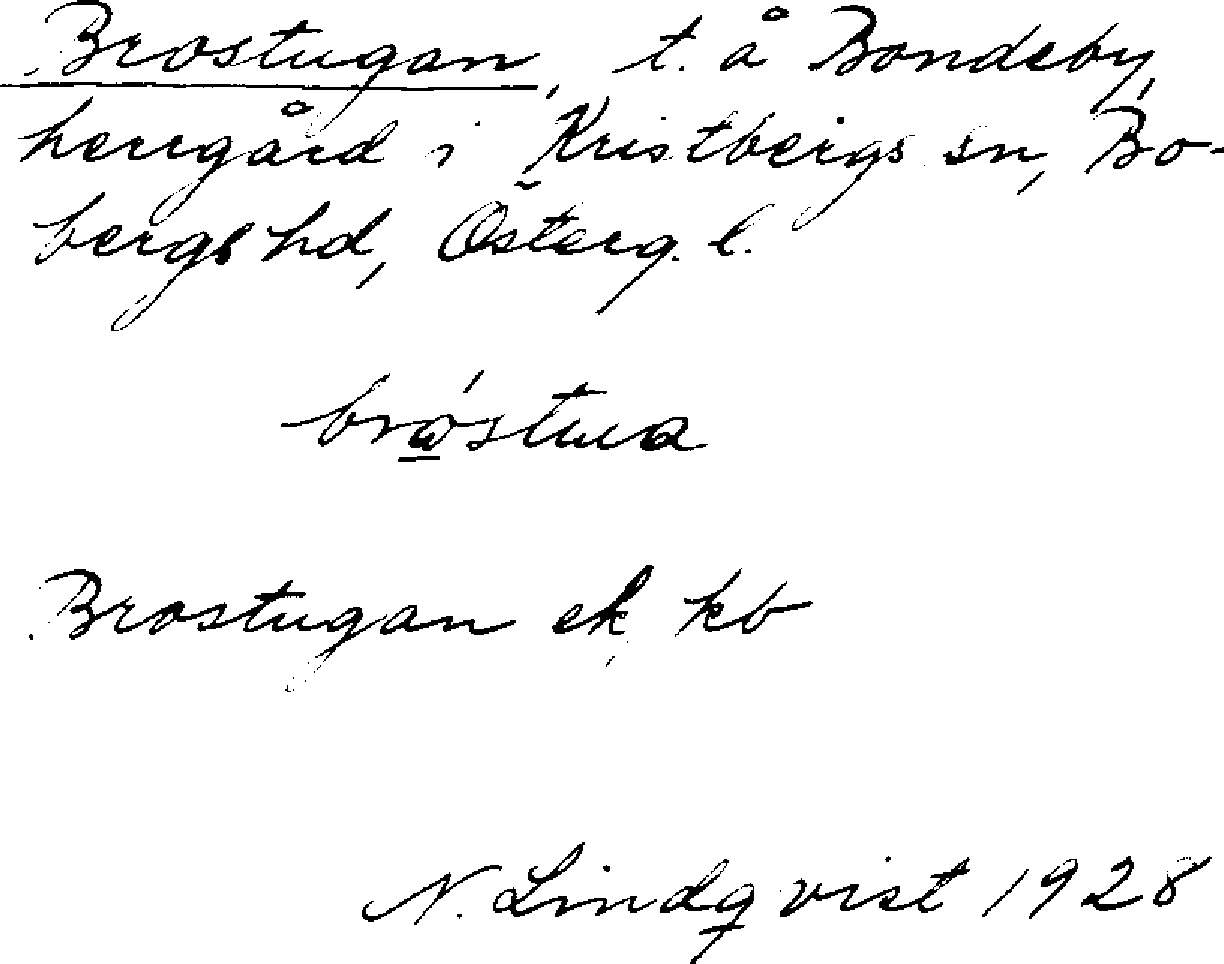 Brostugan, t. å Bondeby
herrgård i Kristbergs sn, Bo-
bergs hd, Österg. l.
Brostugan ek kb
N. Lindqvist 1928